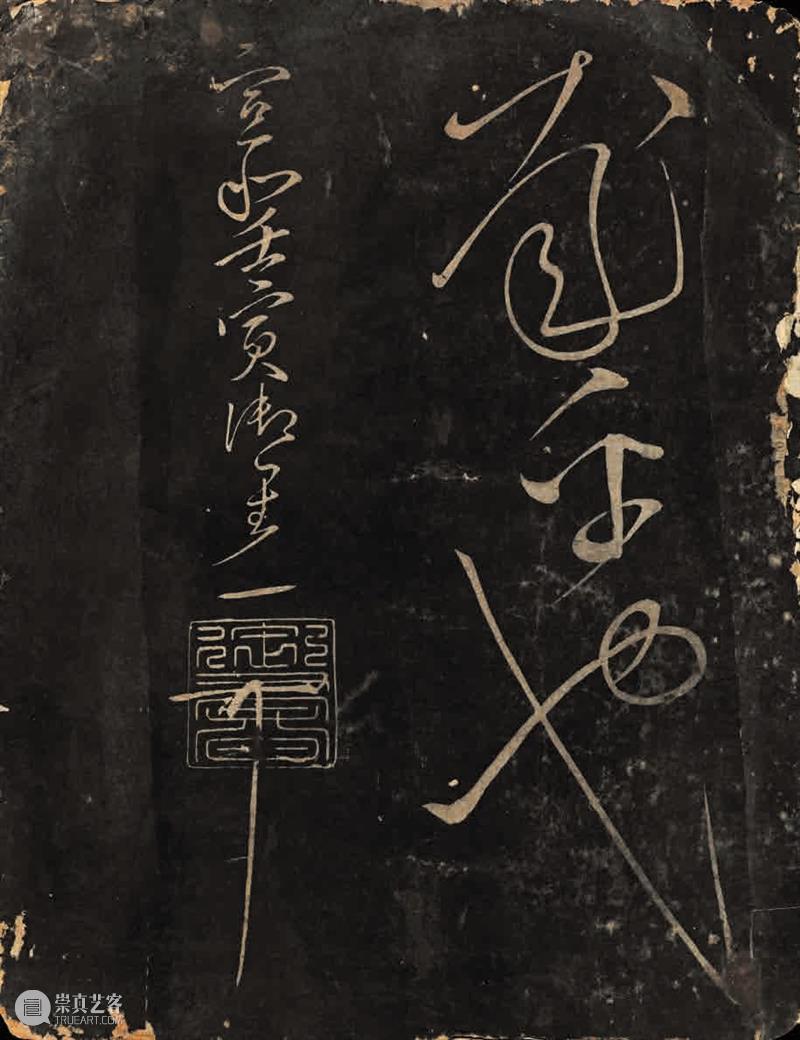 哉乎也
宣和壬寅御筆
御書
崇真艺客
TRUEART.COM